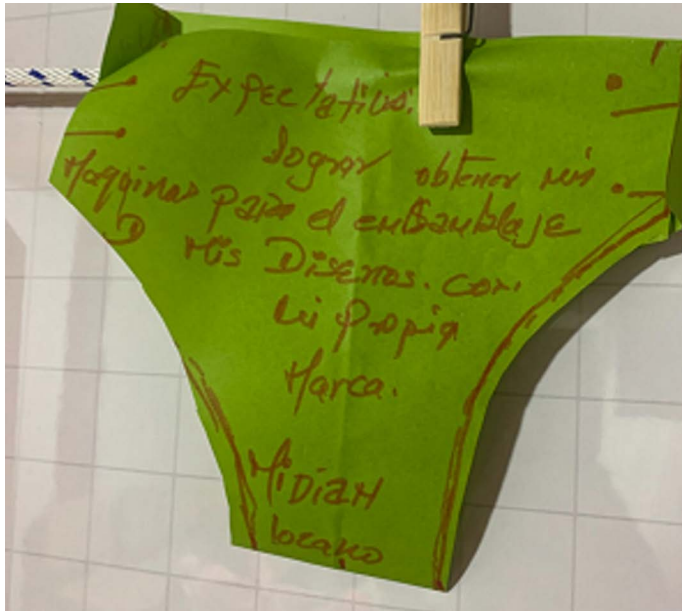 Expectativas:
lograr obtener mis
Maquinas para el emsamblaje
D Mis Diseños. con
mi propia
Marca.
Midian
Lozano